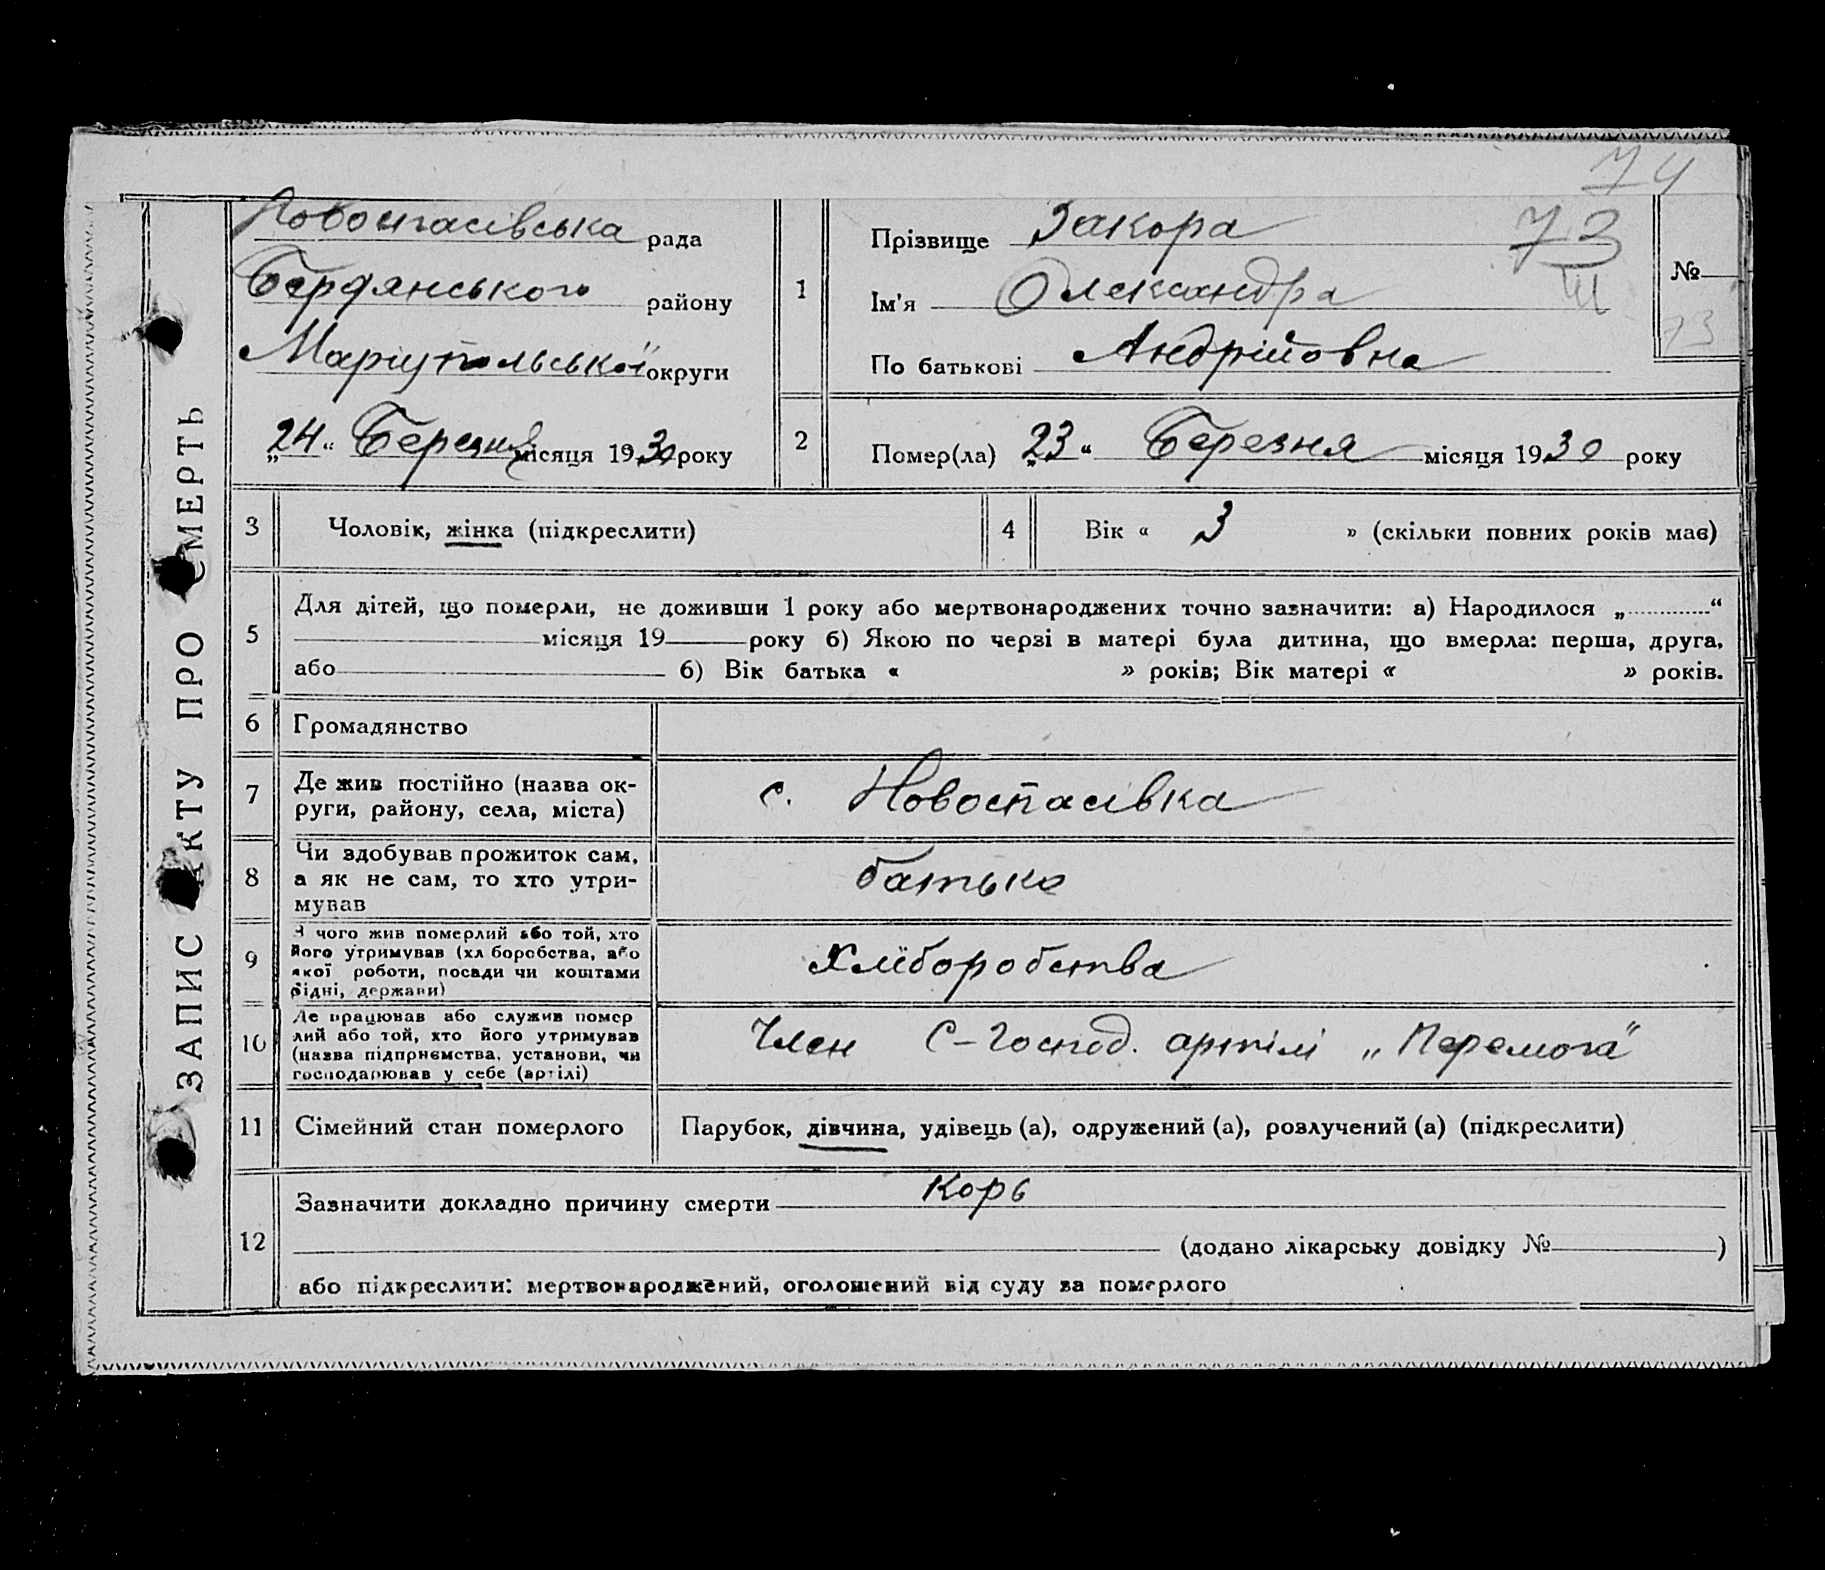 74
ЗАПИС АКТУ ПРО СМЕРТЬ
Новоспасівська рада
Бердянського району
Маріупольської округи
„24“ Березня місяця 1930 року
1
Прізвище Закора
73
III
Ім'я Олександра
По батькові Андрійовна
№
73
2
Помер(ла) „23“ Березня місяця 1930 року
3 Чоловік, жінка (підкреслити)
4 Вік « 3 » (скільки повних років має)
5 Для дітей, що померли, не доживши 1 року або мертвонароджених точно зазначити: а) Народилося „ “
місяця 19 року б) Якою по черзі в матері була дитина, що вмерла: перша, друга,
або 6) Вік батька « » років; Вік матері « » років.
6 Громадянство
7 Де жив постійно (назва ок-
руги, району, села, міста)
с. Новоспасівка
8 Чи здобував прожиток сам,
а як не сам, то хто утри-
мував
батько
9 З чого жив померлий або той, хто
його утримував (хл боробства, або
якої роботи, посади чи коштами
рідні, держави)
Хліборобства
10 Де працював або служив помер
лий або той, хто його утримував
(назва підприємства, установи, чи
господарював у себе (артілі)
Член С-Господ. артілі „Перемога“
11 Сімейний стан померлого
Парубок, дівчина, удівець (а), одружений (а), розлучений (а) (підкреслити)
12 Зазначити докладно причину смерти Корь
(додано лікарську довідку № )
або підкреслити: мертвонароджений, оголошений від суду за померлого